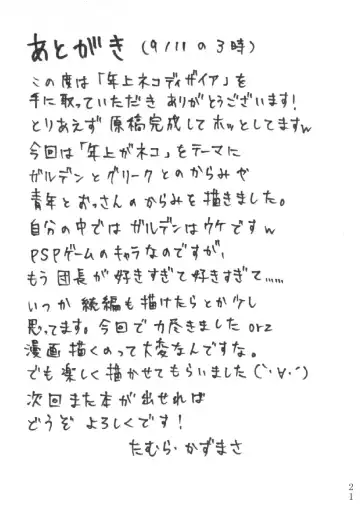 あとがき (9/11の3時)
この度は「年上ネコディザイア」を
手に取っていただき ありがとうございます!
とりあえず 原稿完成して ホッとしてますw
今回は「年上がネコ」をテーマに
ガルデンとグリークとのからみや
青年とおっさんのからみを描きました。
自分の中では ガルデンはウケですw
PSPゲームのキャラなのですが、
もう 団長が好きすぎて好きすぎて……
いつか 続編も描けたらとか少し
思ってます。今回で力尽きました orz
漫画 描くのって大変なんですな。
でも楽しく描かせてもらいました(`・∀・´)
次回また本が出せれば
どうぞ よろしくです!
たむら・かずまさ
21